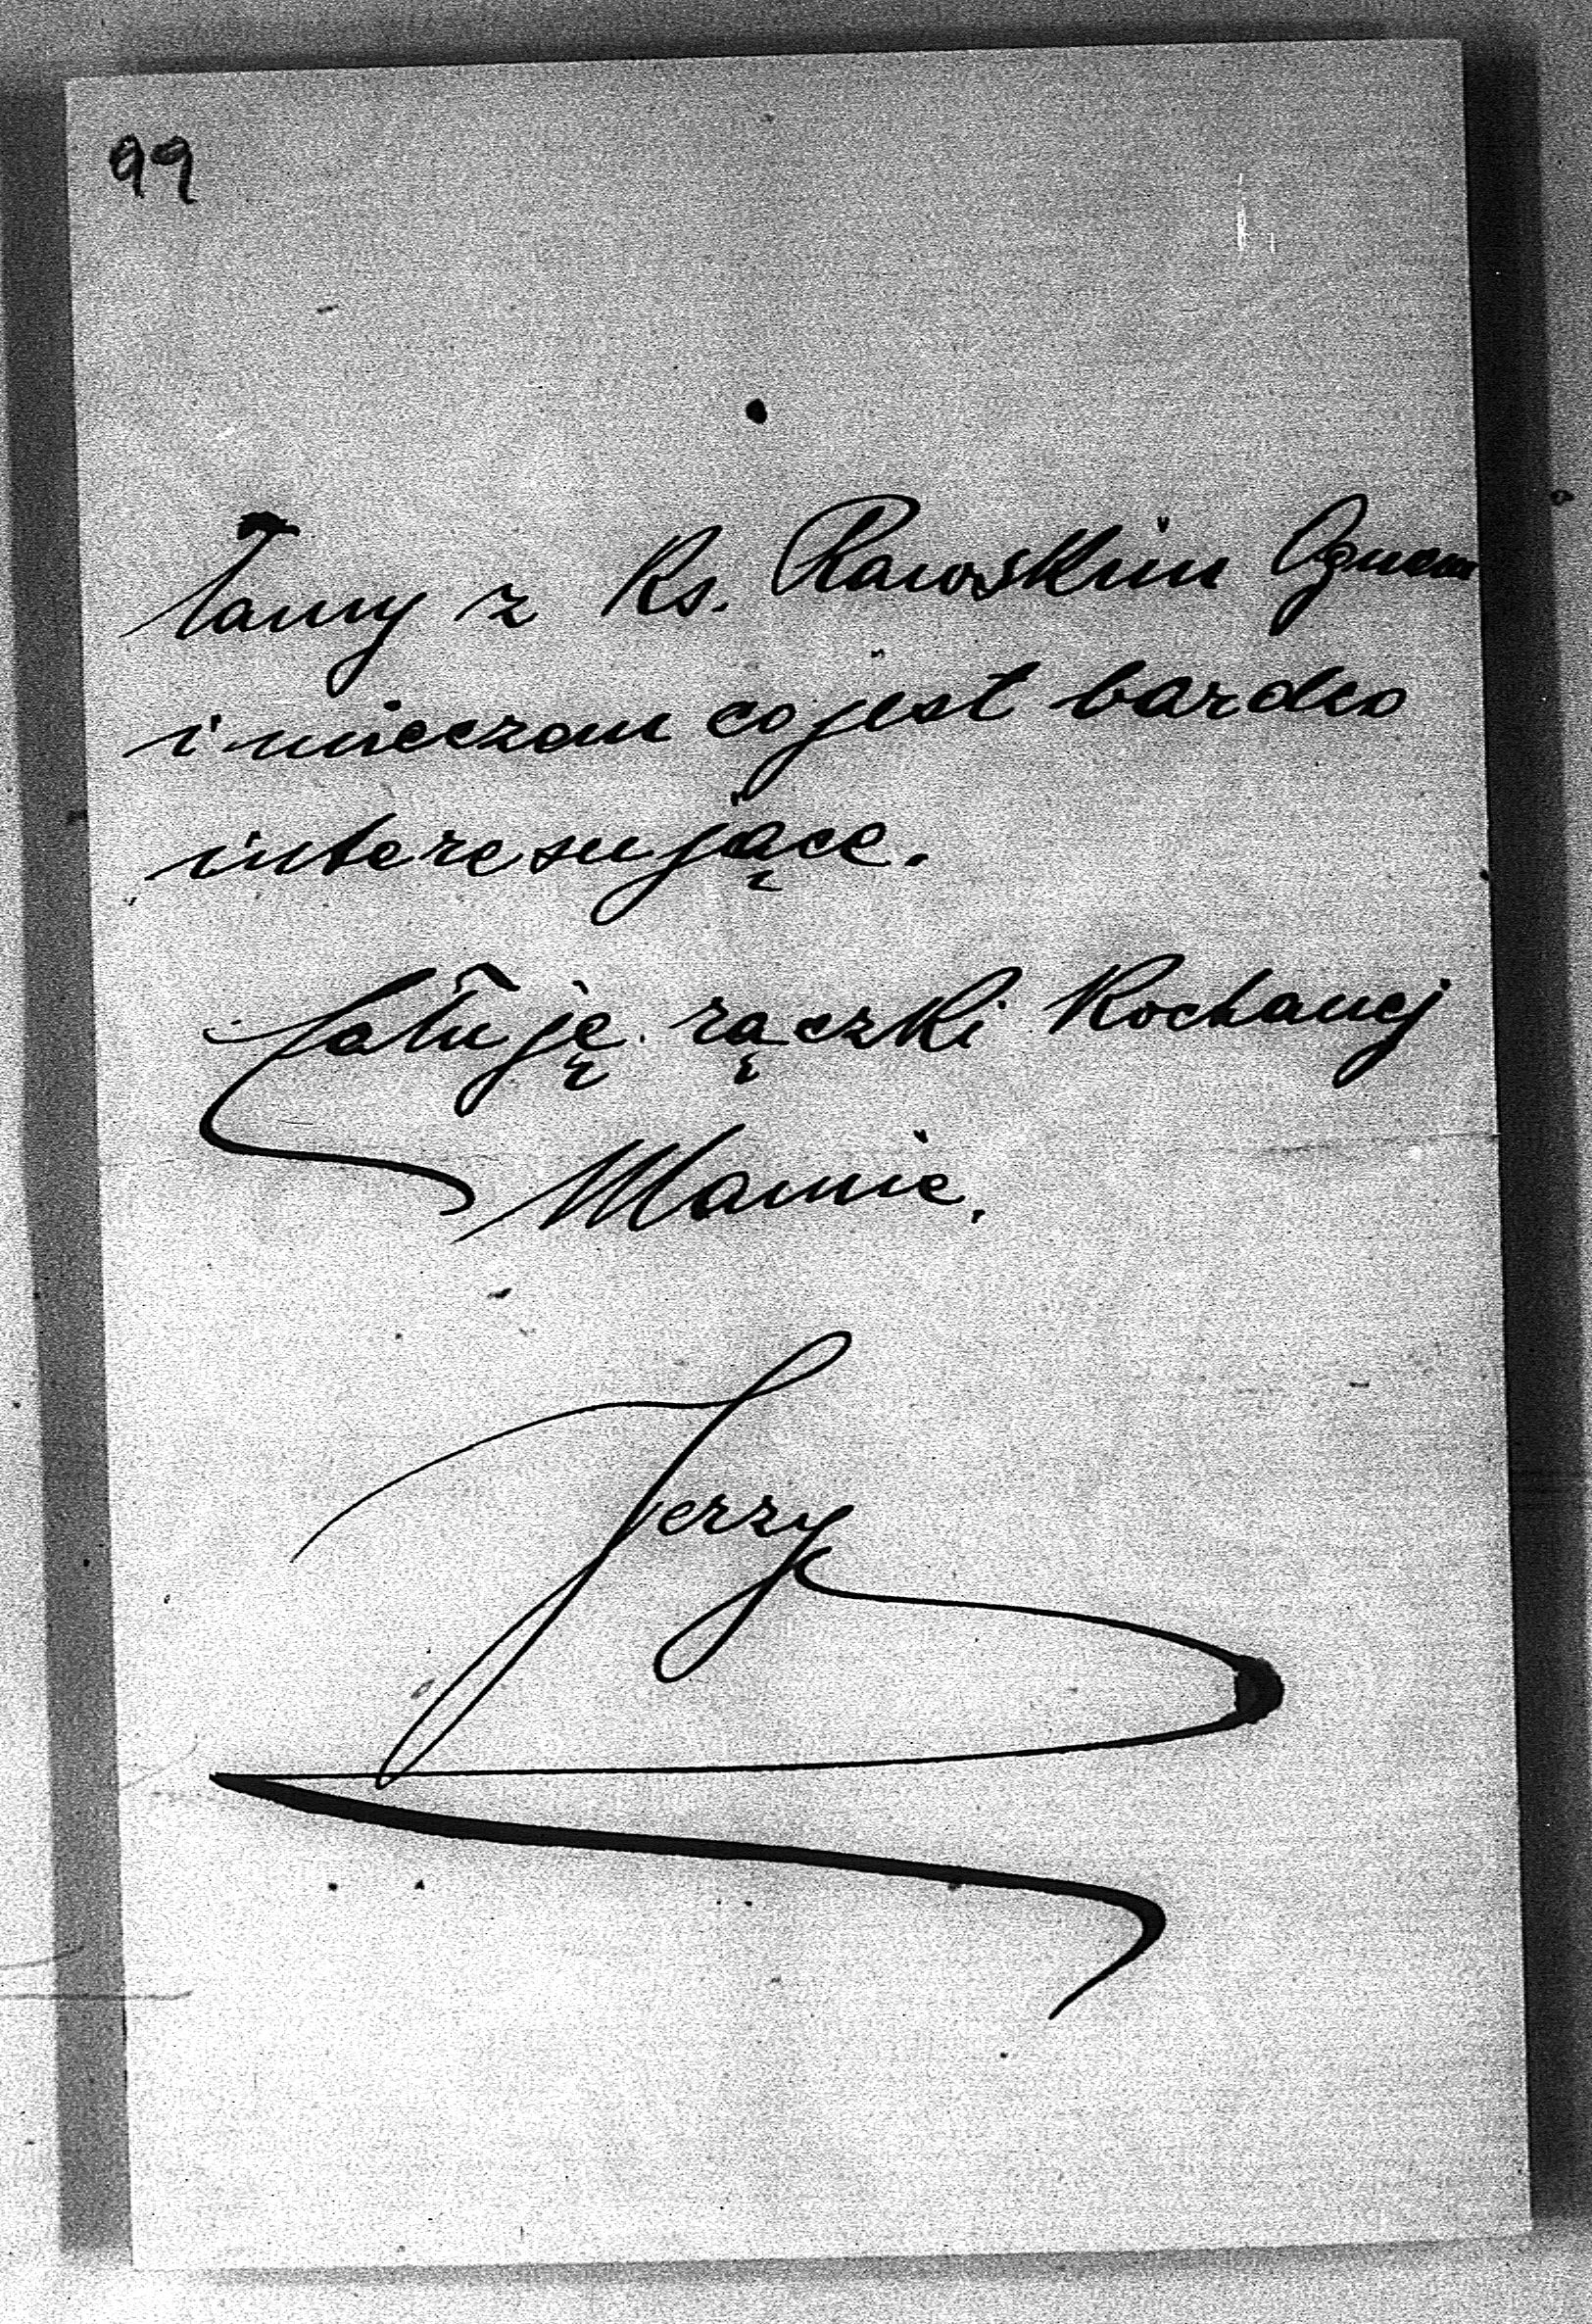 99
tamy z Ks. Rawskim Ogniem
i mieczem co jest bardzo
interesujące.
Całuję rączki Kochanej
Mamie.
Jerzy